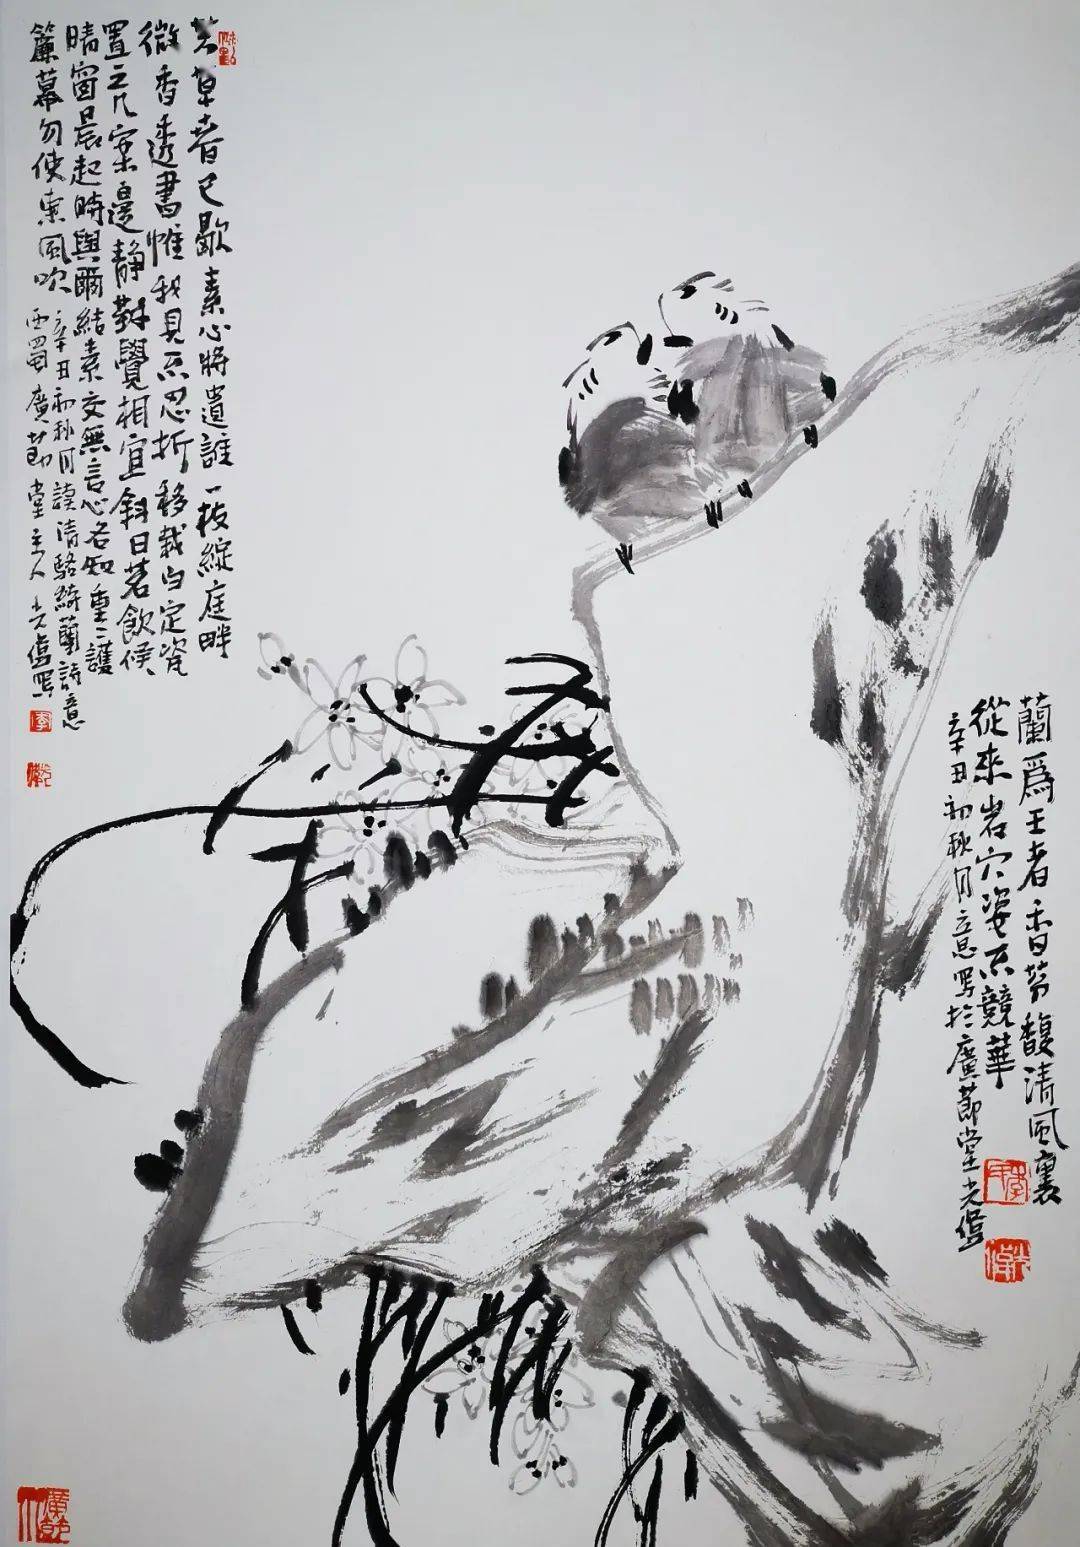 芳草春已歇素心將遺誰一枝綻庭畔
微香透書帷我見不忍折移栽白定瓷
置之几案邊靜對覺相宜斜日茗飲候
晴窗晨起時與爾結素交無言心各知重〻護
簾幕勿使東風吹
辛丑初秋月讀清駱綺蘭詩意
西蜀廣節堂主人光寫
蘭爲王者香芬馥清風裏
從來岩穴姿不競華
辛丑初秋月意寫於廣節堂光